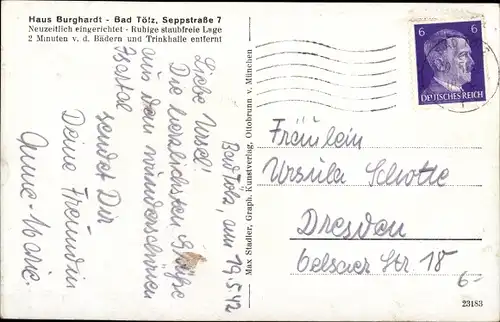 Haus Burghardt - Bad Tölz, Seppstraße 7
Neuzeitlich eingerichtet - Ruhige staubfreie Lage
2 Minuten v. d. Bädern und Trinkhalle entfernt
Bad Tölz, am 19.5.42
Liebe Ursel!
Die herzlichsten Grüße
aus dem wunderschönen
Isartal
sendet Dir
Deine Freundin
Anne-Marie.
Max Stadler, Graph. Kunstverlag, Ottobrunn v. München
6 6
DEUTSCHES REICH
Fräulein
Ursula Schotte
Dresden
Str. 18
6-
23183